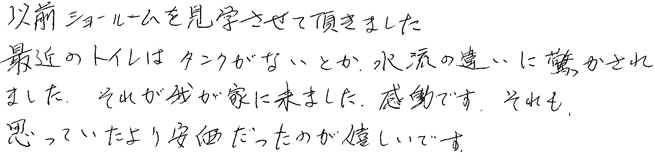 以前ショールームを見学させて頂きました
最近のトイレはタンクがないとか、水流の違いに驚かされ
ました. それが我が家に来ました. 感動です. それも,
思っていたより安価だったのが嬉しいです.